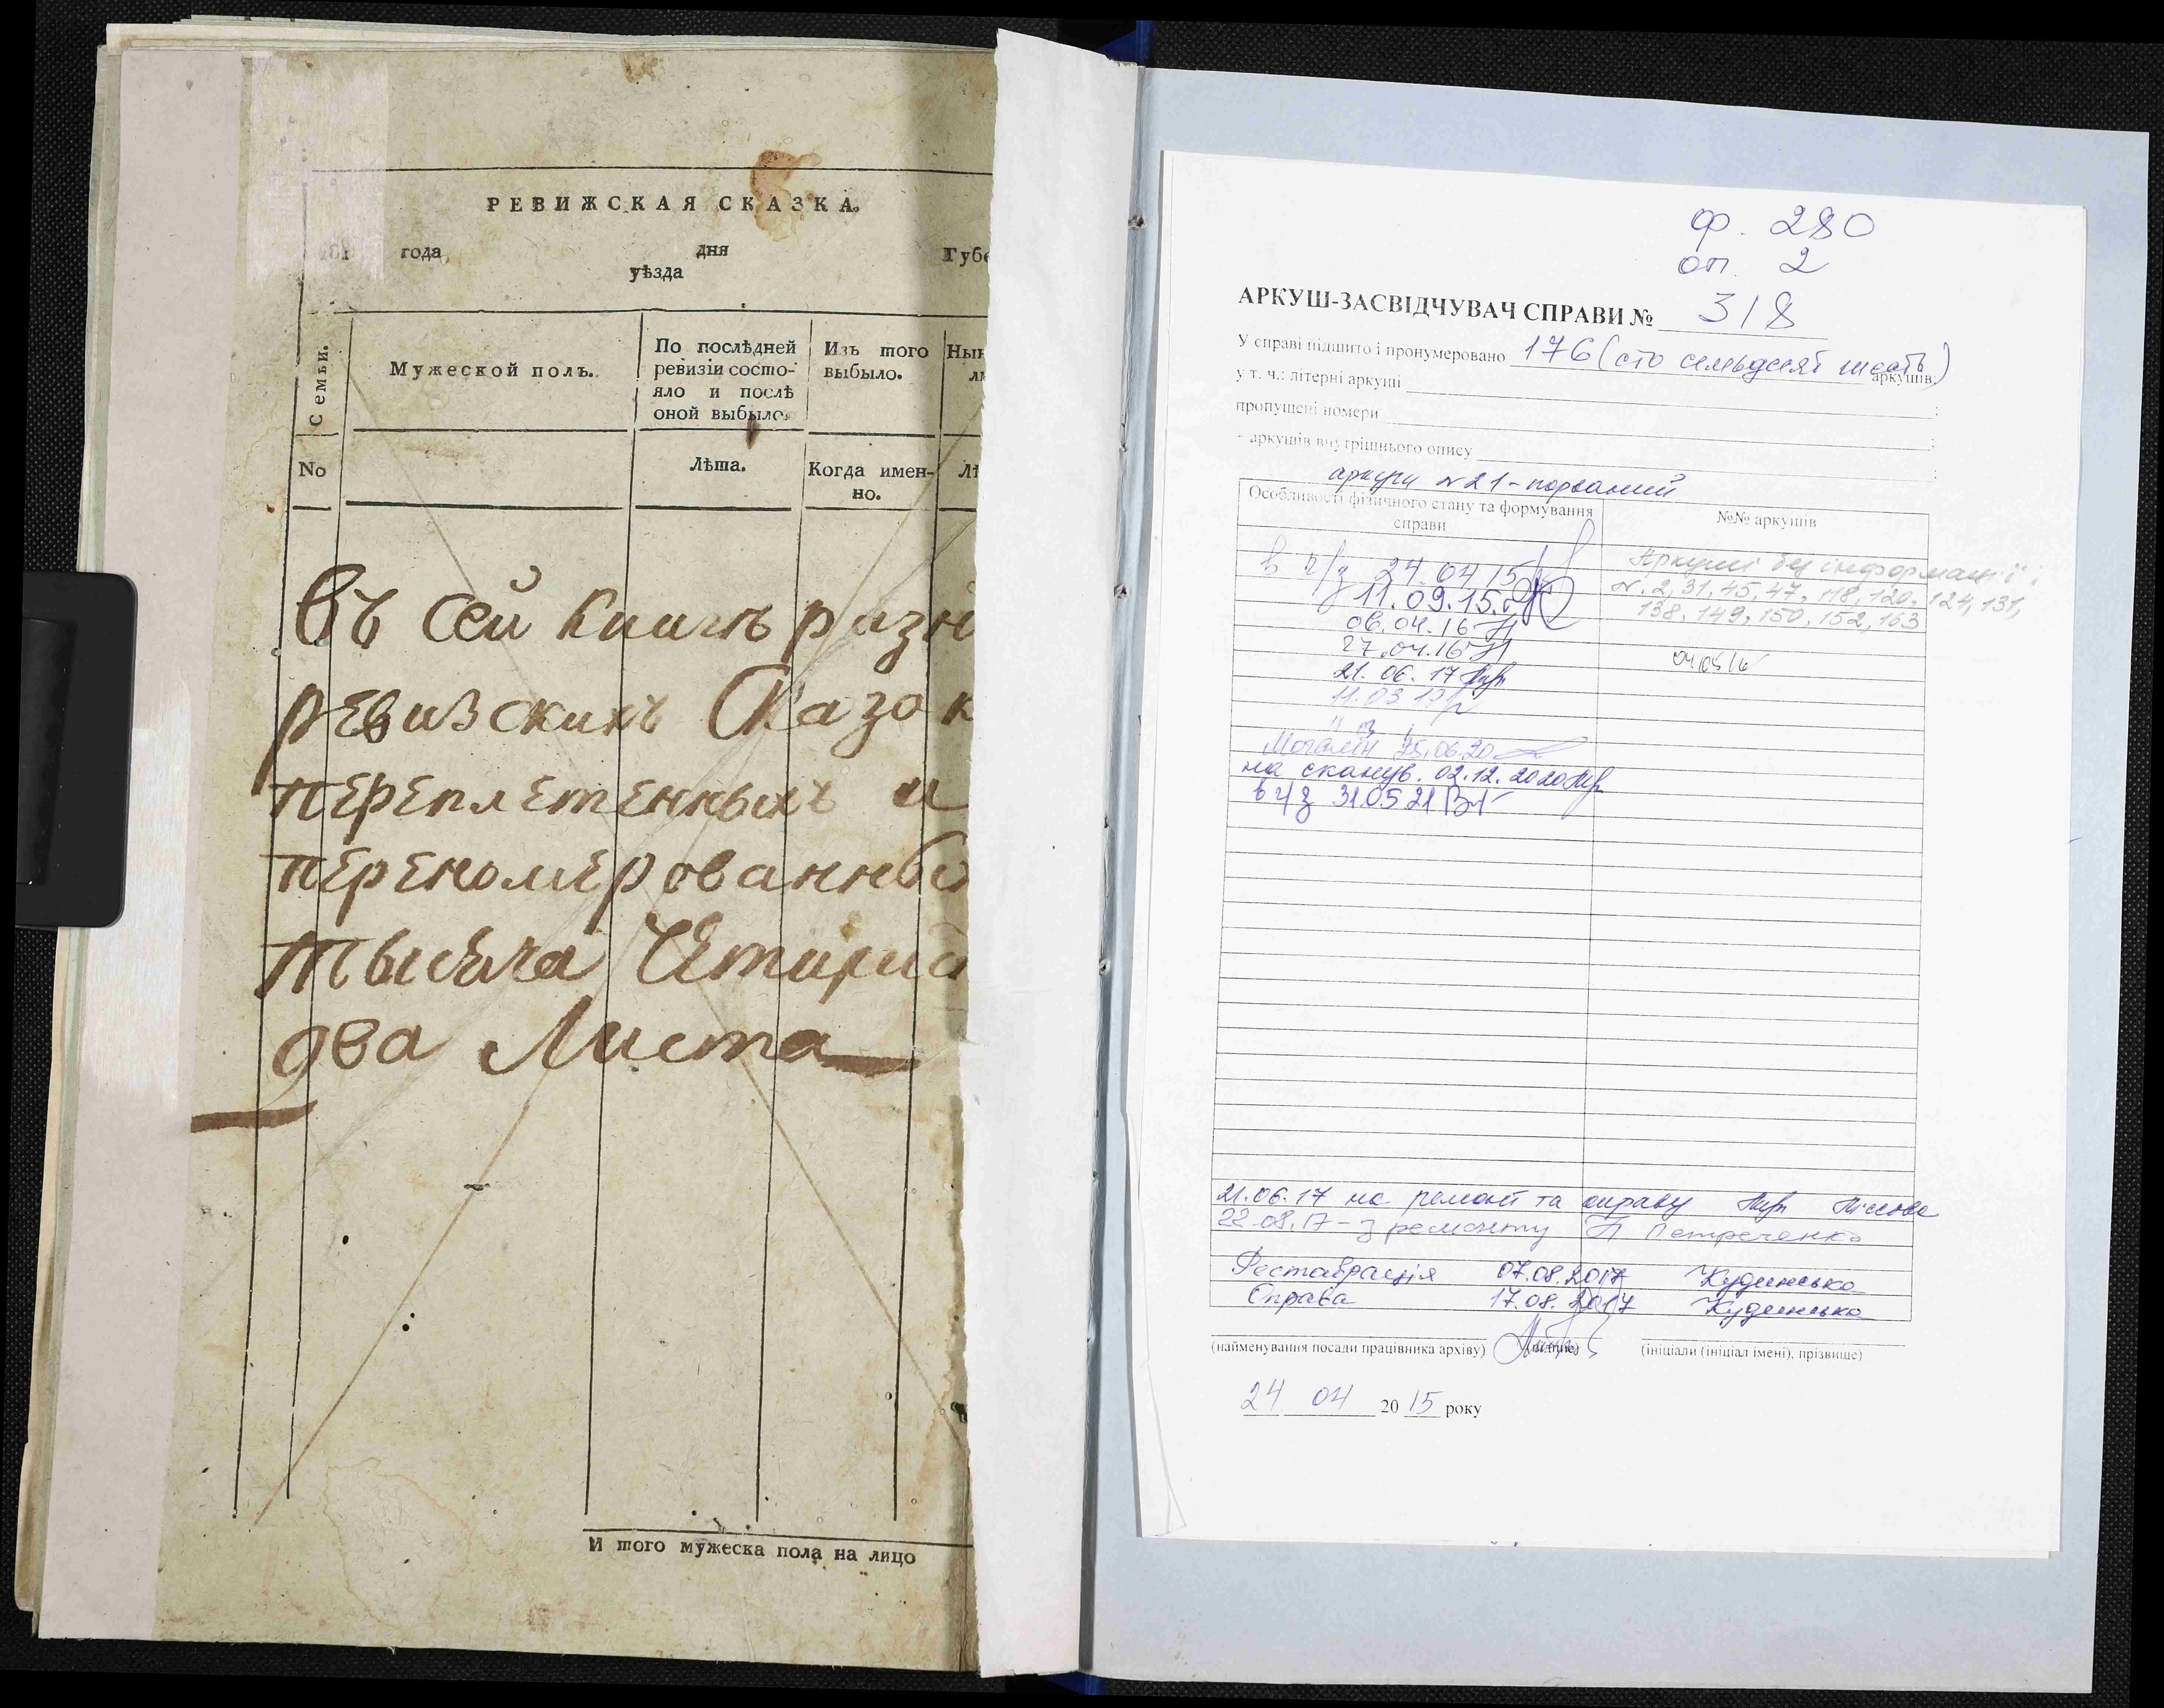 РЕВИЖСКАЯ СКАЗКА.
181 года, дня Губе
уѣзда
Семьи.
Мужеской полъ.
По послѣдней ревизіи состо-
яло и послѣ
оной выбыло.
Изъ того
выбыло.
Нын
ли
No
Лѣта.
Когда имен-
но.
Лѣ
Въ сей книгъ разн
ревизскихъ Сказок
переплетенныхъ и
переномерованны
тысяча Четири
два Листа
И того мужеска пола на лицо
ф. 280
оп. 2
АРКУШ-ЗАСВІДЧУВАЧ СПРАВИ № 318
У справі підшито і пронумеровано 176 (сто сімьдесят шість) аркушів;
у т. ч.: літерні аркуші ;
пропущені номери ;
+ аркушів внутрішнього опису ;
аркуш №21-порваний
Особливості фізичного стану та формування
справи
№№ аркушів
в ч/з 24.04.15
11.09.15
06.04.16
27.04.16
21.06.17
11.03
Аркуші без інформації:
№. 2, 31, 45, 47, 118, 120, 124, 131,
138, 149, 150, 152, 163
04.05.16
25.06.20
на сканув. 02.12.2020
в ч/з 31.05.21
21.06.17 на ремонт та оправу
22.08.17 - з ремонту Петреченко
Реставрація 07.08.2017 Кудинська
Оправа 17.08.2017 Кудинська
(найменування посади працівника архіву) (підпис) (ініціали (ініціал імені), прізвище)
24 04 2015 року